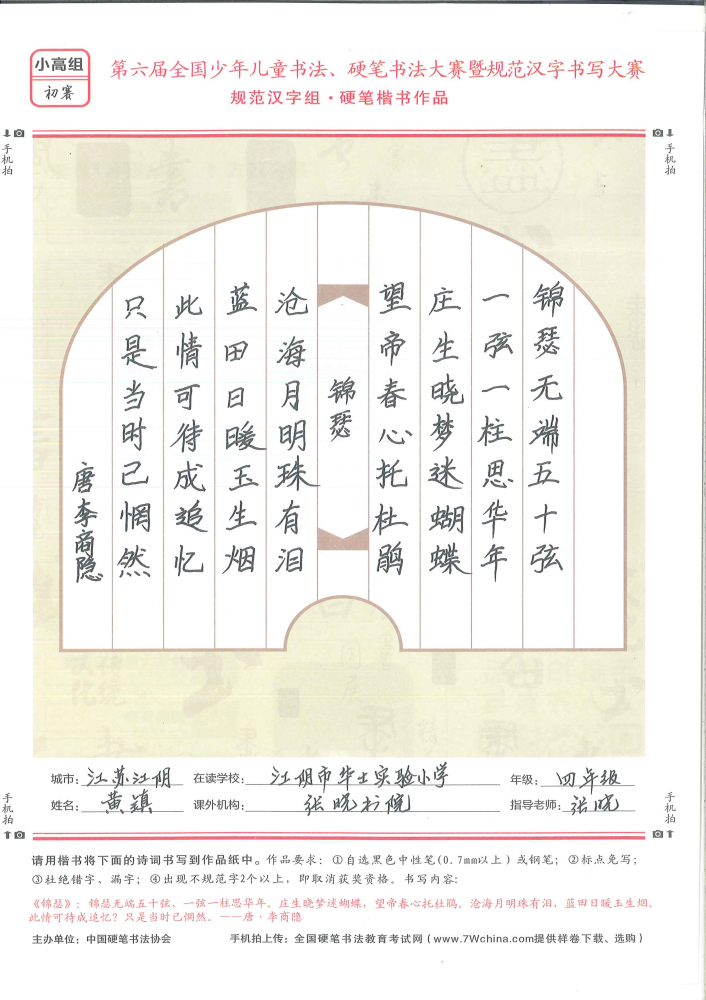 小高组
初赛
第六届全国少年儿童书法、硬笔书法大赛暨规范汉字书写大赛
规范汉字组·硬笔楷书作品
手机拍
手机拍
锦瑟无端五十弦
一弦一柱思华年
庄生晓梦迷蝴蝶
望帝春心托杜鹃
锦瑟
沧海月明珠有泪
蓝田日暖玉生烟
此情可待成追忆
只是当时已惘然
唐李商隐
城市：江苏江阴 在读学校：江阴市华士实验小学 年级：四年级
姓名：黄镇 课外机构：张晓书院 指导老师：张晓
手机拍
手机拍
请用楷书将下面的诗词书写到作品纸中。作品要求：①自选黑色中性笔(0.7mm以上）或钢笔；②标点免写；
③杜绝错字、漏字；④出现不规范字2个以上，即取消获奖资格。书写内容：
《锦瑟》：锦瑟无端五十弦，一弦一柱思华年。庄生晓梦迷蝴蝶，望帝春心托杜鹃。沧海月明珠有泪，蓝田日暖玉生烟。
此情可待成追忆？只是当时已惘然。——唐·李商隐
主办单位：中国硬笔书法协会 手机拍上传：全国硬笔书法教育考试网（www.7Wchina.com提供样卷下载、选购）